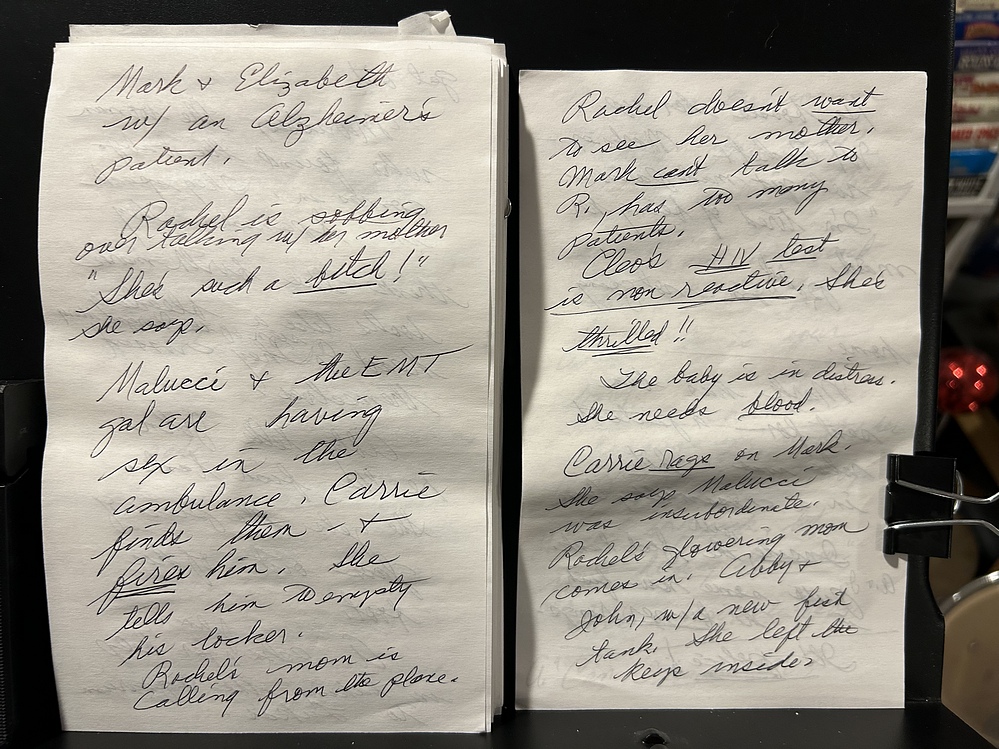 Mark & Elizabeth
w/ an Alzheimer's
patient.
Rachel is sobbing
over talking w/ her mother
"She's such a bitch!"
she says.
Malucci & the EMT
gal are having
sex in the
ambulance. Carrie
finds them - &
fires him. She
tells him to empty
his locker.
Rachel's mom is
calling from the plane.
Rachel doesn't want
to see her mother.
Mark can't talk to
R., has too many
patients.
Cleo's HIV test
is non reactive. She's
thrilled!!
The baby is in distress.
She needs blood.
Carrie rags on Mark.
She says Malucci
was insubordinate.
Rachel's glowering mom
comes in. Abby &
John, w/ a new fish
tank. She left the
keys inside